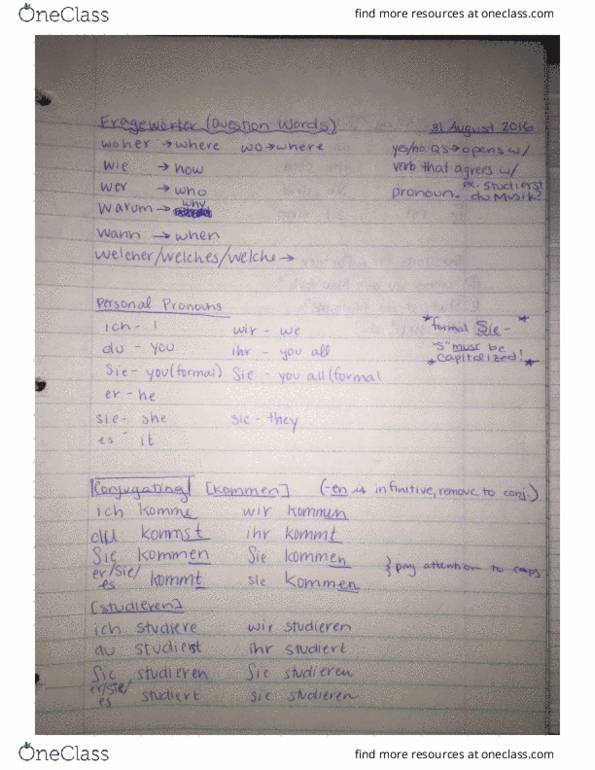 OneClass
find more resources at oneclass.com
Fragewörter (Question Words) 31 August 2016
woher → where wo → where yes/no Qs → opens w/
wie → how verb that agrees w/
wer → who pronoun. ex. studierst du Musik?
warum → why
wann → when
welcher/welches/welche →
Personal Pronouns
ich - I wir - we *formal Sie - *
du - you ihr - you all "S" must be
Sie - you (formal) Sie - you all (formal *capitalized!*
er - he
sie - she sie - they
es - it
Conjugating [kommen] (-en is infinitive, remove to conj.)
ich komme wir kommen
du kommst ihr kommt
Sie kommen Sie kommen
er/sie/es kommt sie kommen } pay attention to caps
[studieren]
ich studiere wir studieren
du studierst ihr studiert
Sie studieren Sie studieren
er/sie/es studiert sie studieren
OneClass
find more resources at oneclass.com